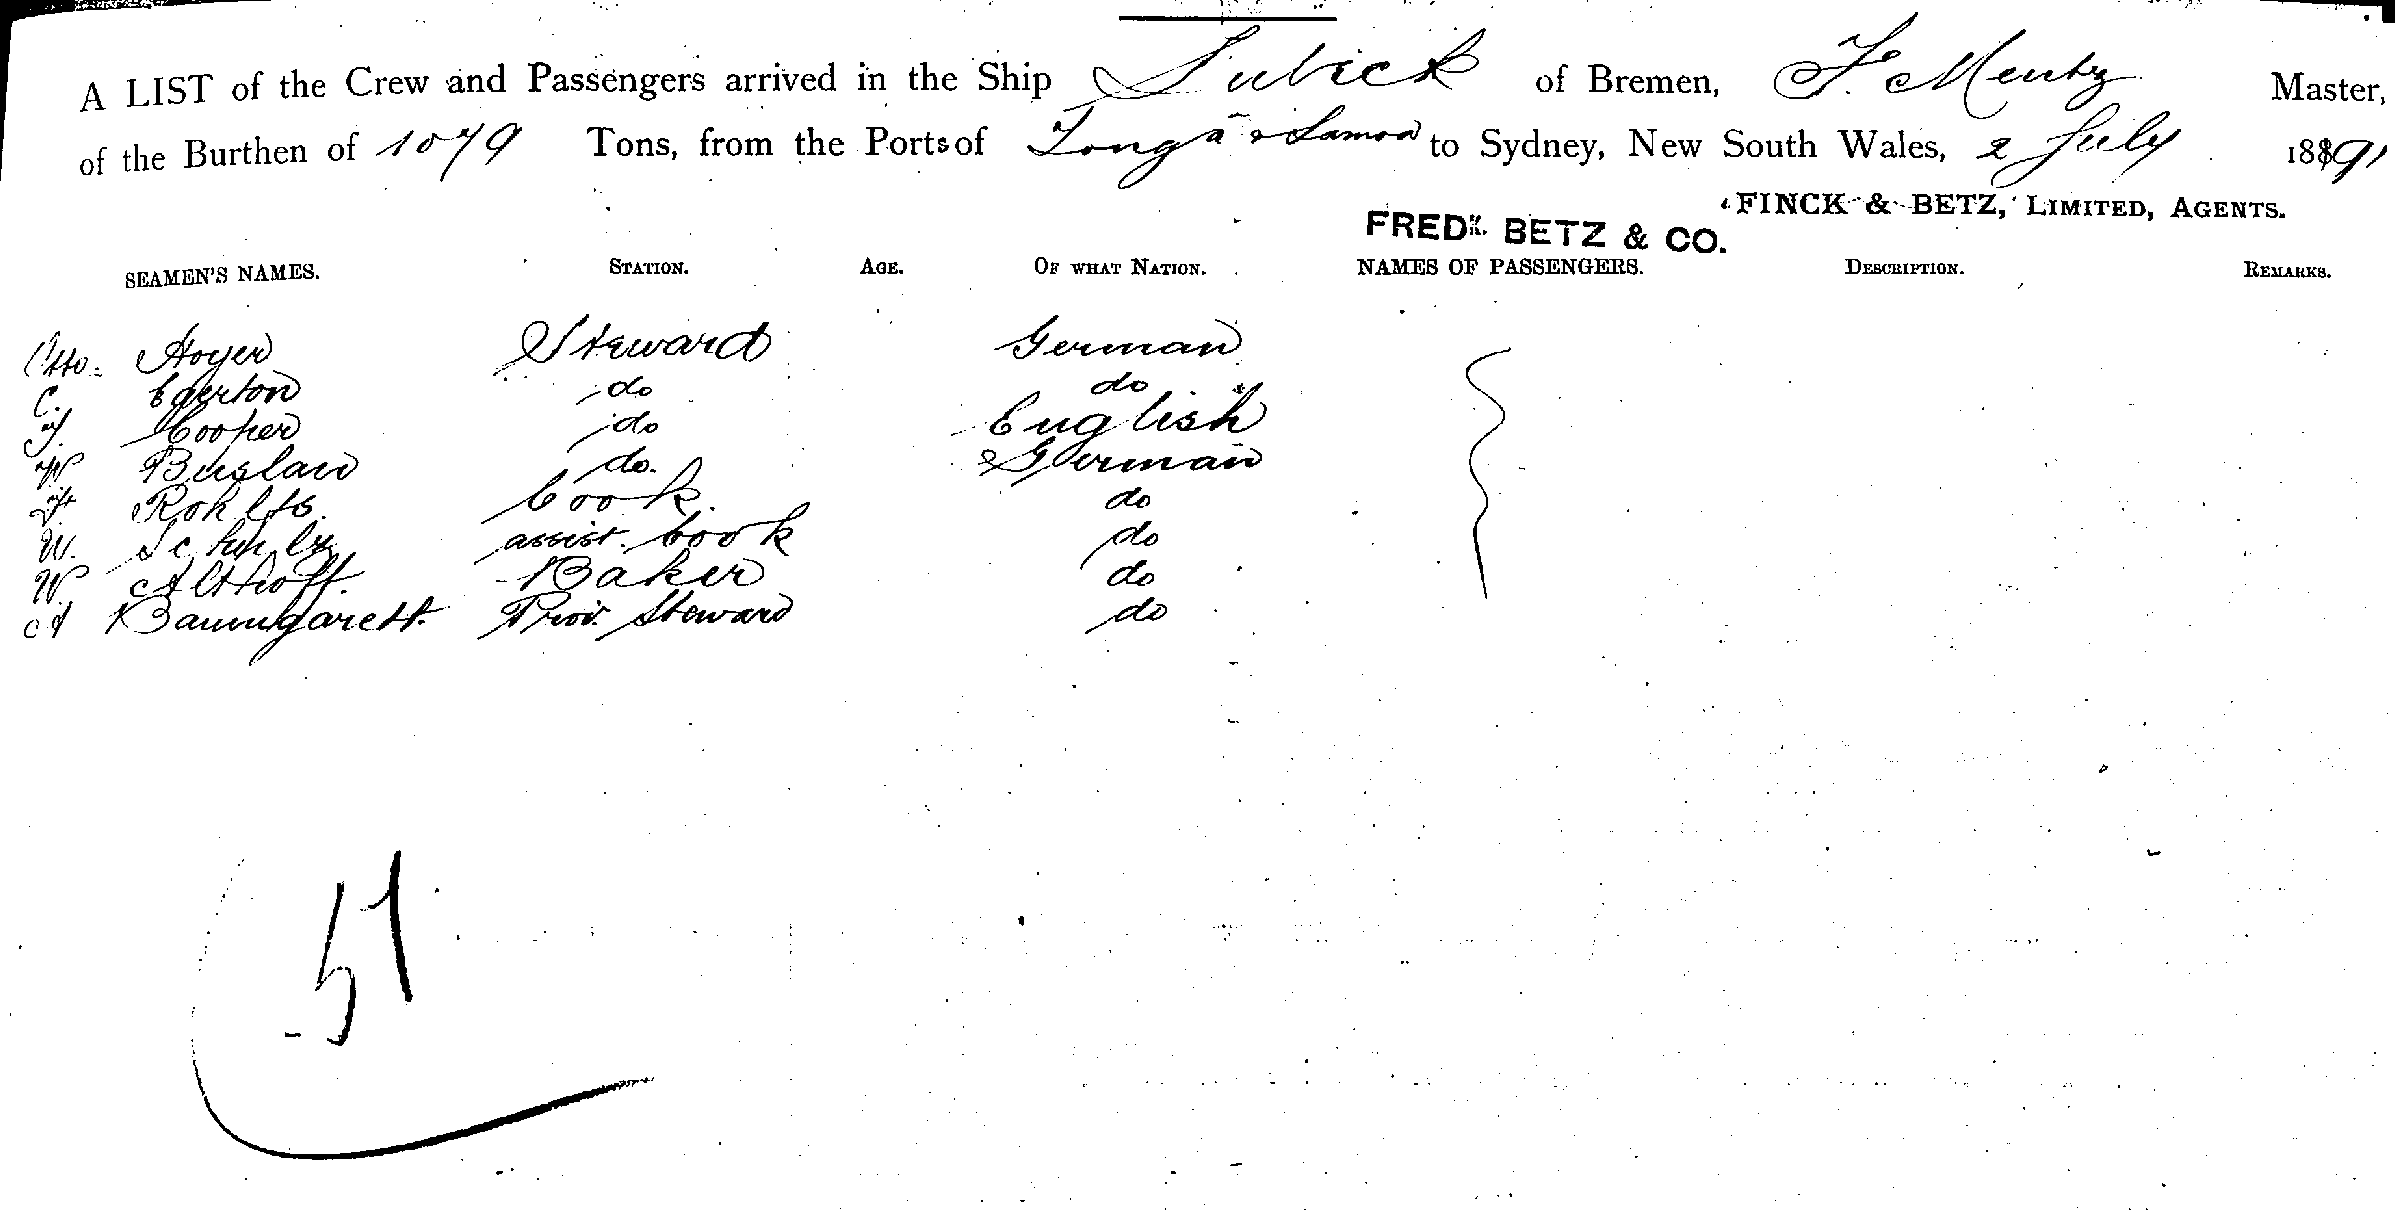 A LIST of the Crew and Passengers arrived in the Ship Lubeck of Bremen, F. Mentz Master,
of the Burthen of 1079 Tons, from the Ports of Tonga & Samoa to Sydney, New South Wales, 2 July 1891
FINCK & BETZ, LIMITED, AGENTS.
FREDK. BETZ & CO.
SEAMEN'S NAMES. STATION. AGE. OF WHAT NATION. NAMES OF PASSENGERS. DESCRIPTION. REMARKS.
Otto Hoyer Steward German
C. Egerton do do
J. Cooper do English
W Buslaw do. German
H Rohlfs. Cook. do
W. Schulz assist. Cook do
W. Althoff. Baker do
A Baumgarett. Prov. Steward do
51